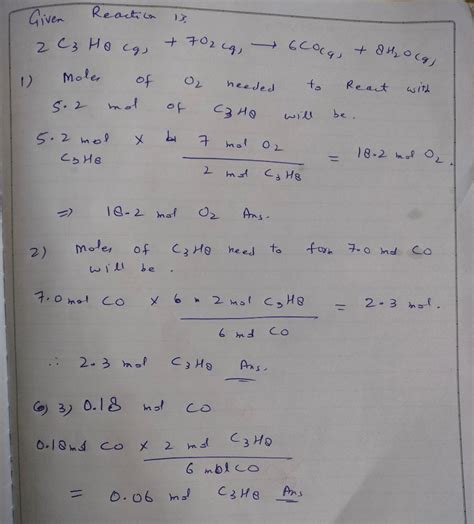 Given Reaction is
2 C3 H8 (g) + 7O2 (g) → 6CO(g) + 8H2O (g)
1) Moles of O2 needed to React with
5.2 mol of C3H8 will be.
5.2 mol C3H8 × 7 mol O2 / 2 mol C3H8 = 18.2 mol O2
⇒ 18.2 mol O2 Ans.
2) Moles of C3H8 need to form 7.0 mol CO
will be.
7.0 mol CO × 2 mol C3H8 / 6 mol CO = 2.3 mol.
∴ 2.3 mol C3H8 Ans.
3) 0.18 mol CO
0.18 mol CO × 2 mol C3H8 / 6 mol CO
= 0.06 mol C3H8 Ans